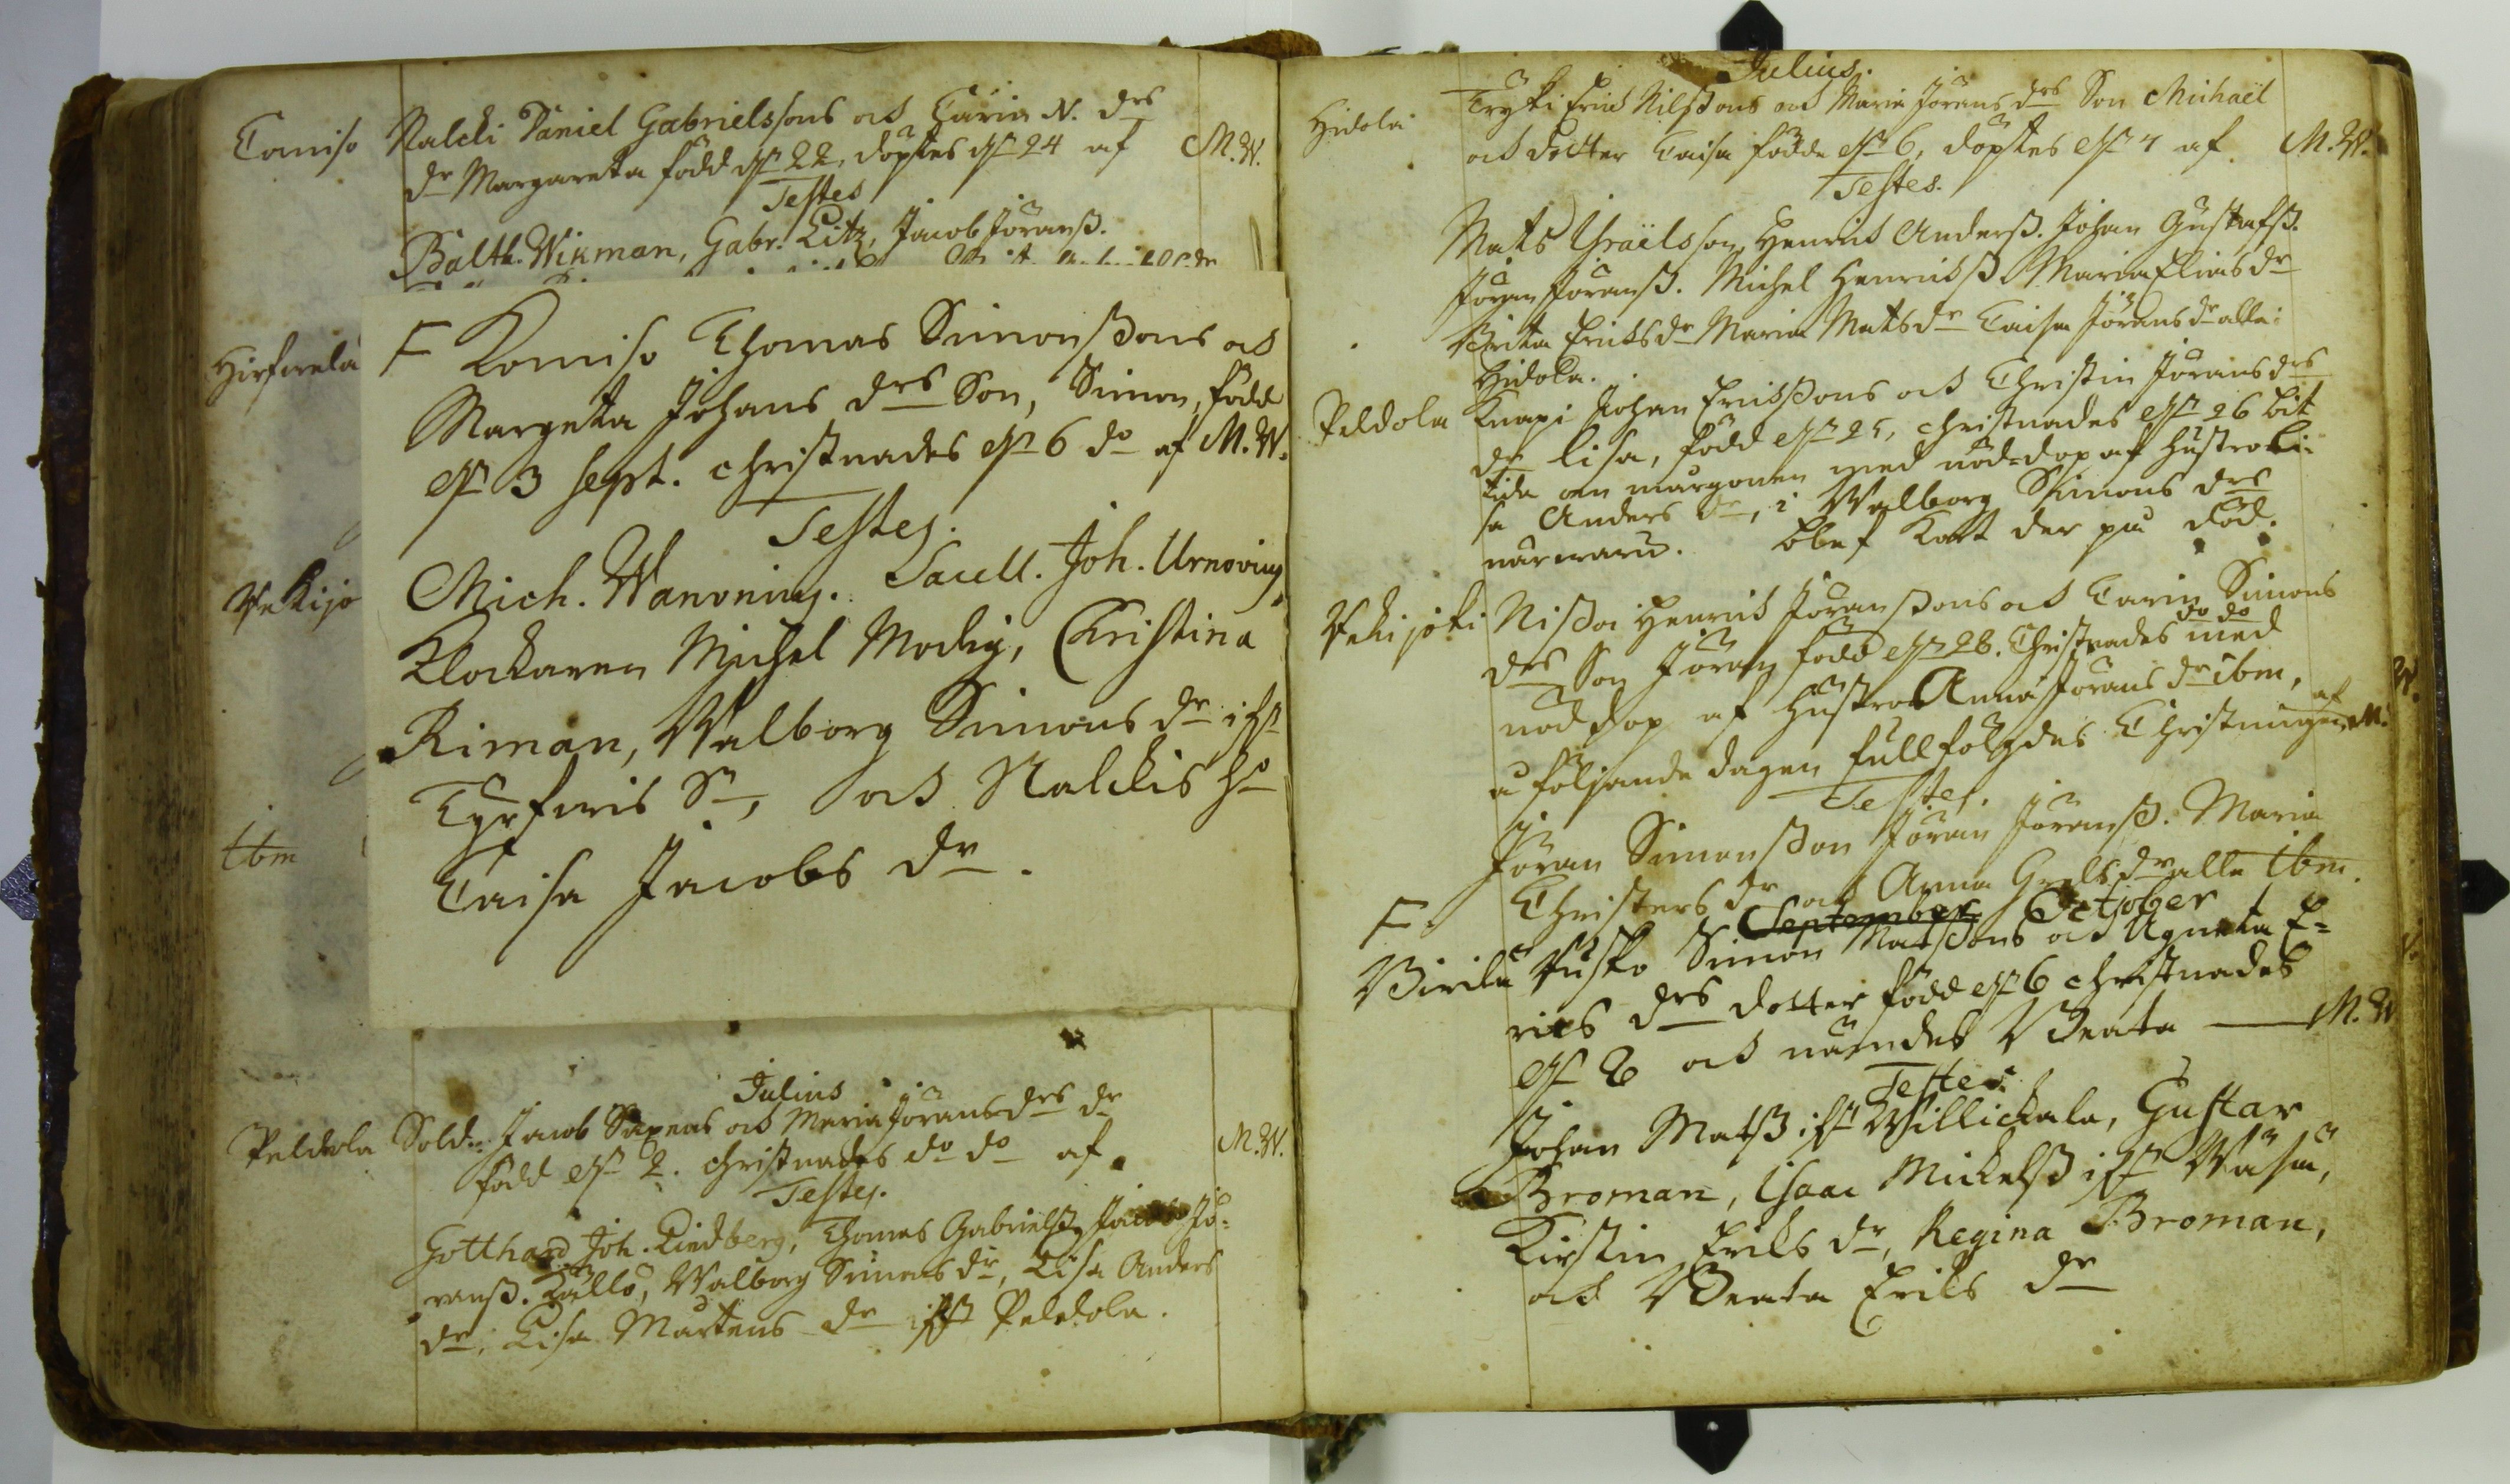 Comiso Nalcki Daniel Gabrielssons och Carin N. drs
dr Margareta född d 22, döptes d 24 af M.W.
Testes
Balth. Wikman, Gabr. Litz, Jacob Jöranß.
F Komiso Thomas Simonßons och
Margeta Johans drs Son, Simon, född
d 3 Sept. christnades d 6 do af M.W.
Testes.
Mich. Wanoning. Sacell. Joh. Urnovius,
Klockaren Michel Modig, Christina
Riman, Walborg Simons dr
och Nalckis
Caisa Jacobs dr.
Hirfwela
Wekijo
ibm
Julius
Peldola Sold. Jacob Saxens och Maria Jörans drs dr
född d 2. christnades do do af M.W.
Testes.
Gotthard Joh. Lindberg, Thomas Gabrielß, Jacob Jö-
ranß. Källo, Walborg Simons dr, Lisa Anders
dr, Lisa Martens dr Peldola.
Julius.
Hidola Tryki Erich Nilßons och Maria Jörans drs Son Michaël
och dotter Caisa födde d 6, döptes d 7 af M.W.
Testes.
Mats Israëlsson, Henrich Anderß. Johan Gustafß.
Jöran Jöranß. Michel Henrichß Maria Elias dr
Brita Erichs dr Maria Mats dr Caisa Jörans dr alla i
Hidola.
Peldola Knapi Johan Erichßons och Christin Jörans drs
dr Lisa, född d 25, christnades d 26 bit
tida om morgonen med nöd-dop af hustro Li-
sa Anders dr, i Walborg Simons drs
närwaru. blef kort der på död.
Wekijoki Nißoi Henrich Jöranßons och Carin Simons
drs Son Jöran född d 28. Christnades do do med
nöddop af hustro Anna Jörans dr ibm,
å följande dagen fullfölgdes Christningen af M. W.
Testes.
Jöran Simonßon Jöran Jöranß. Maria
Christers dr och Anna Grels dr alla ibm.
F. September October
Birila Kusko Simon Matßons och Agneta E-
rics drs dotter född d 6 christnades
d 8 och nämdes Beata M.W
Testes.
Johan Matß Willickala, Gustav
Broman, Isaac Mickelß Wäsin,
Kirstin Erichs dr, Regina Broman,
och Beata Erichs dr